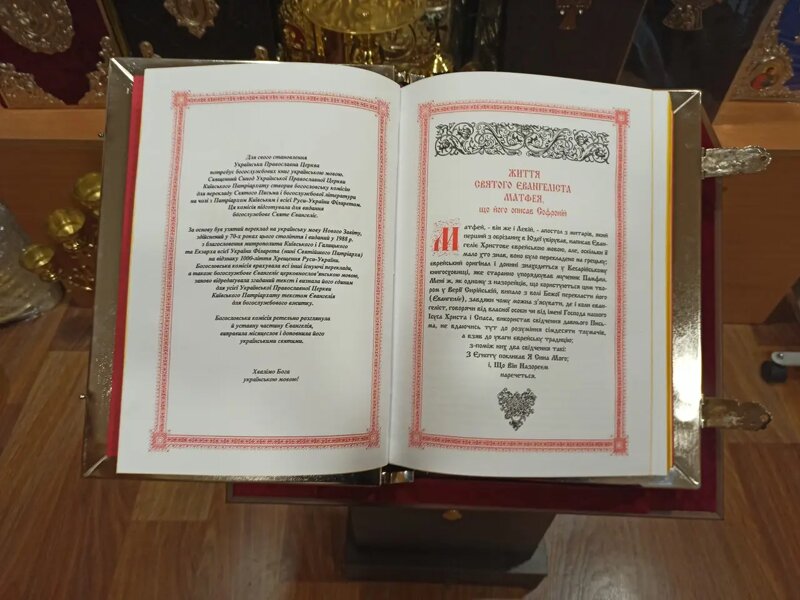 Для свого становлення
Українська Православна Церква
потребує богослужбових книг українською мовою.
Священний Синод Української Православної Церкви
Київського Патріархату створив богословську комісію
для перекладу Святого Письма і богослужбової літератури
на чолі з Патріархом Київським і всієї Руси-України Філаретом.
Ця комісія підготувала для видання
богослужбове Святе Євангеліє.
За основу був узятий переклад на українську мову Нового Завіту,
здійснений у 70-х роках цього століття і виданий у 1988 р.
з благословення митрополита Київського і Галицького
та Екзарха всієї України Філарета (нині Святійшого Патріарха)
на відзнаку 1000-ліття Хрещення Руси-України.
Богословська комісія врахувала всі інші існуючі переклади,
а також богослужбове Євангеліє церковнослов'янською мовою,
заново відредагувала згаданий текст і визнала його єдиним
для усієї Української Православної Церкви
Київського Патріархату текстом Євангелія
для богослужбового вжитку.
Богословська комісія ретельно розглянула
й уставну частину Євангелія,
виправила місяцеслов і доповнила його
українськими святими.
Хвалімо Бога
українською мовою!
ЖИТТЯ
СВЯТОГО ЄВАНГЕЛІСТА
МАТФЕЯ,
що його описав Софроній
Матфей, - він же і Левій, - апостол з митарів, який
перший з обрізаних в Юдеї увірував, написав Єван-
геліє Христове єврейською мовою, але, оскільки її
мало хто знав, воно було перекладено на грецьку;
єврейський оригінал і донині знаходиться у Кесарійському
книгосховищі, яке старанно упорядкував мученик Памфил.
Мені ж, як одному з назорейців, що користується цим тво-
ром у Верії Сирійській, випало з волі Божої перекласти його
(Євангеліє), завдяки чому можна з'ясувати, де і сам еванге-
ліст, говорячи від власної особи чи від імені Господа нашого
Ісуса Христа і Спаса, використав свідчення давнього Пись-
ма, не вдаючись тут до розуміння сімдесяти тлумачів,
а взяв до уваги єврейську традицію;
з-поміж них два свідчення такі:
З Єгипту покликав Я Сина Мого;
і, Що Він Назореєм
наречеться.